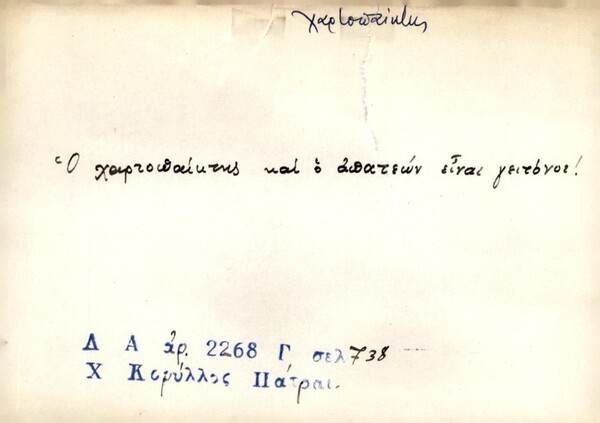 χαρτοπαίκτης
Ὁ χαρτοπαίκτης καί ὁ ἀπατεών εἶναι γειτόνοι!
Λ Α ἀρ. 2268 Γ σελ 738
Χ Κορύλλος Πάτραι.